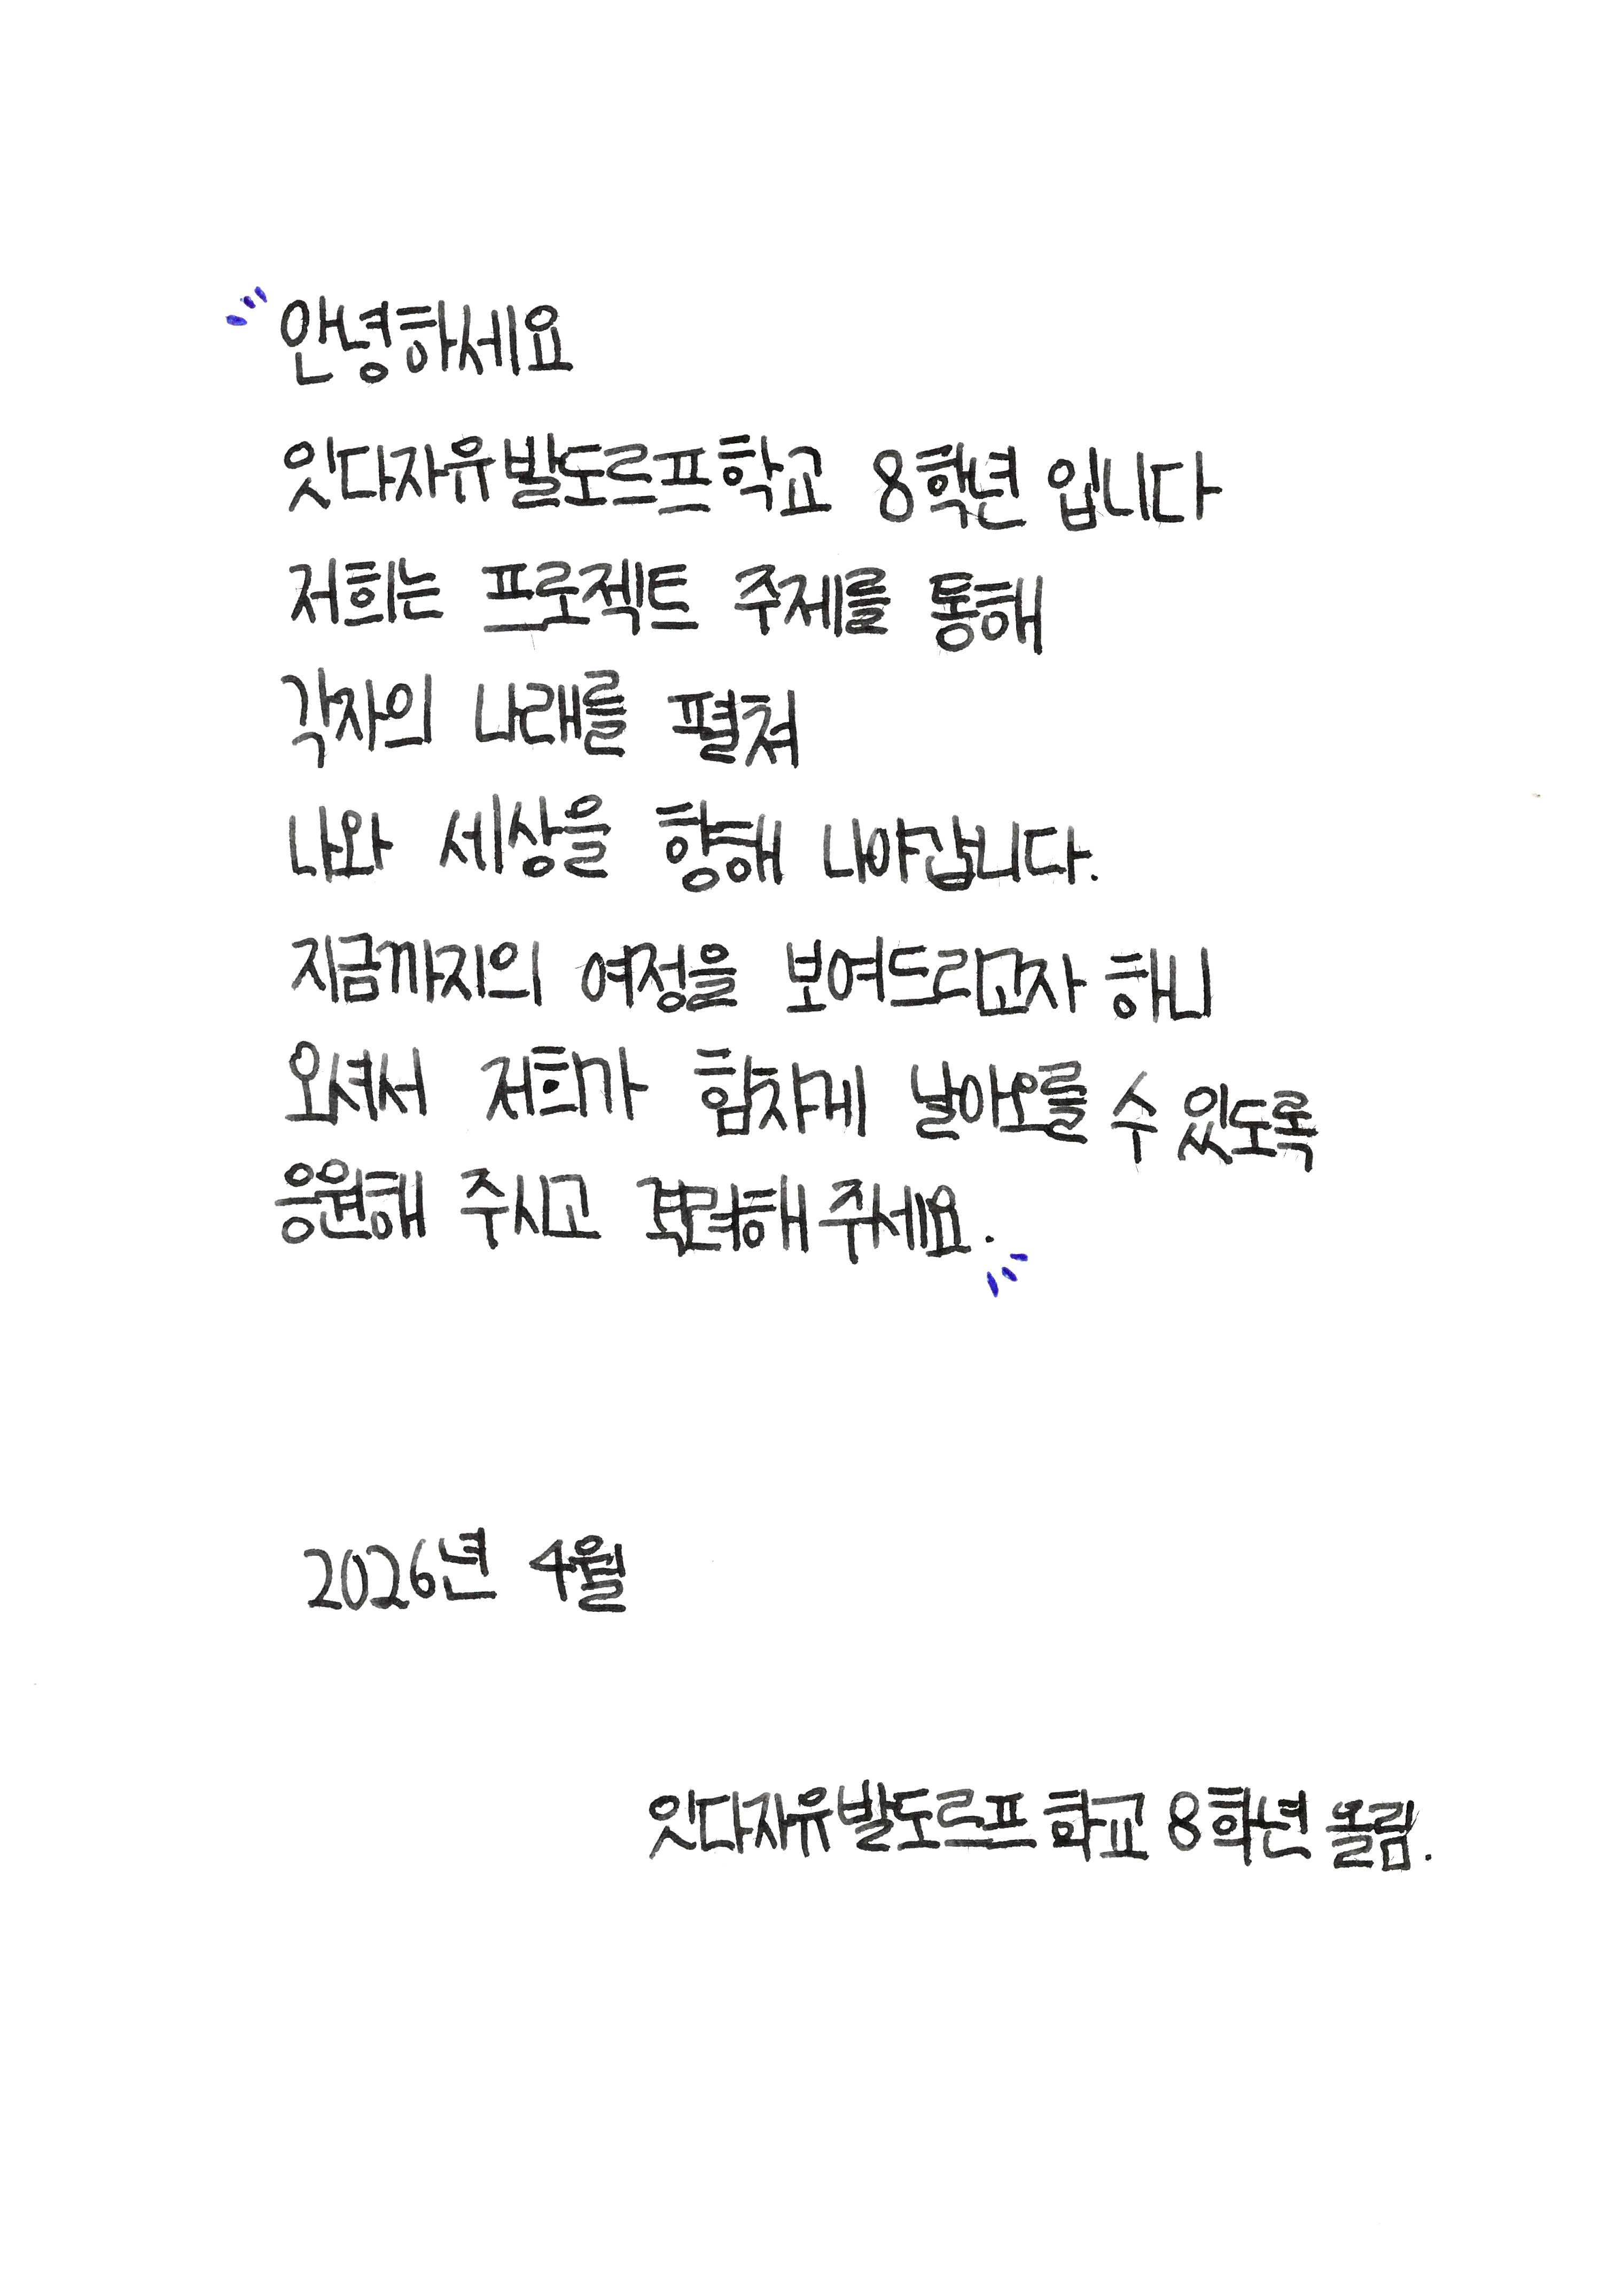 안녕하세요
잇다자유발도르프학교 8학년 입니다
저희는 프로젝트 주제를 통해
각자의 나래를 펼쳐
나와 세상을 향해 나아갑니다.
지금까지의 여정을 보여드리고자 하니
오셔서 저희가 힘차게 날아오를 수 있도록
응원해 주시고 격려해 주세요.
2026년 4월
잇다자유발도르프 학교 8학년 올림.